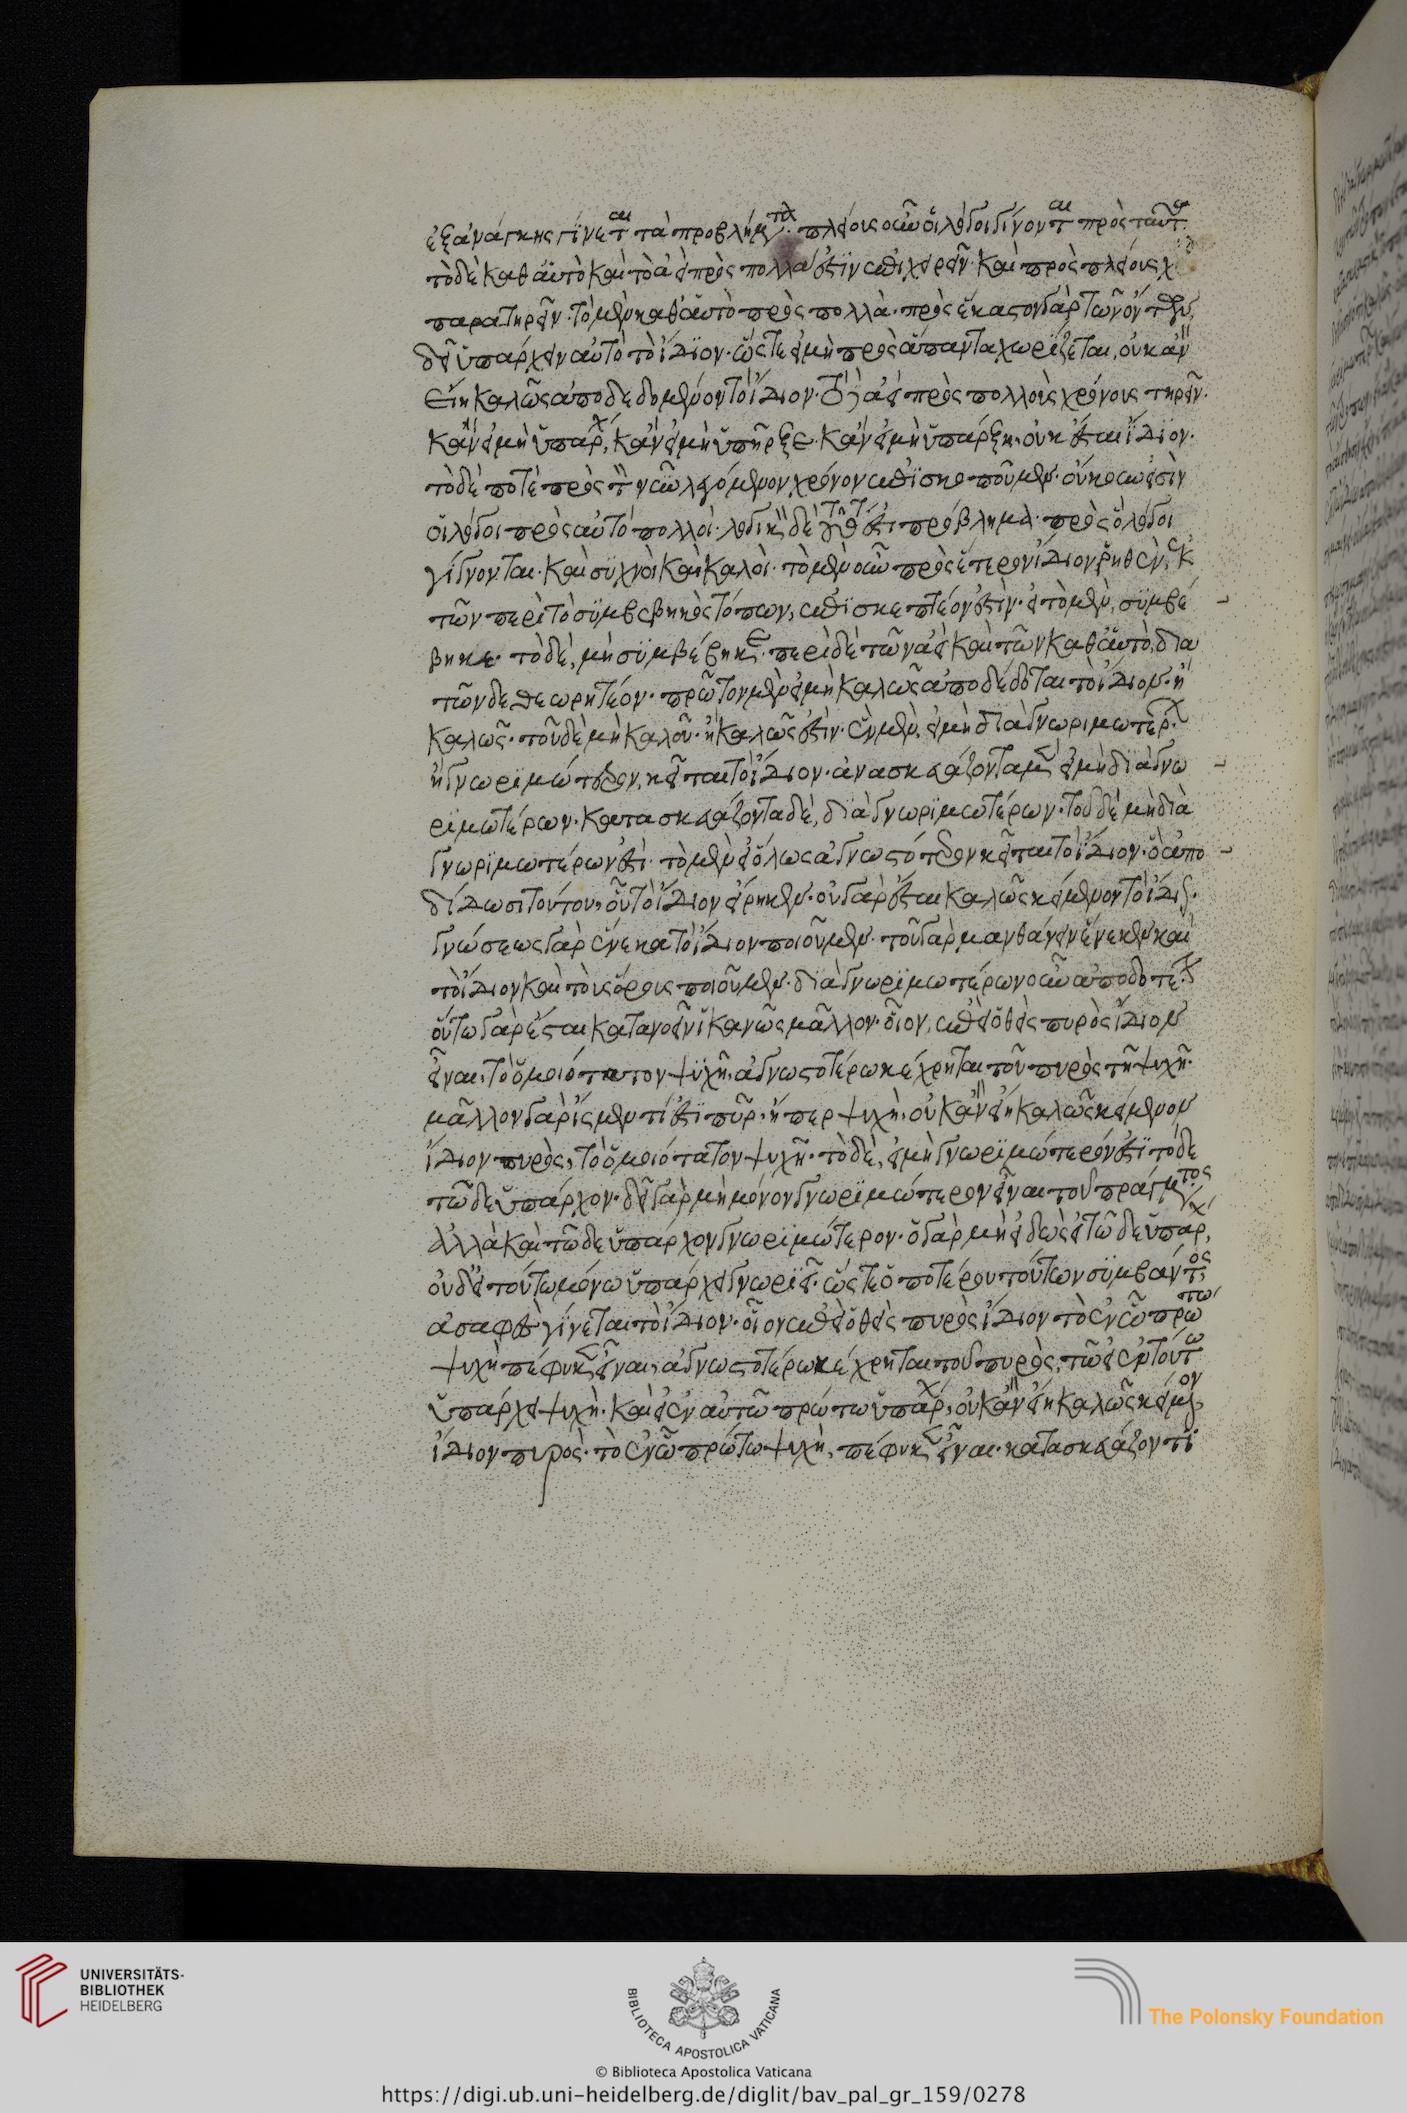 ἐξανάγκης γίνεται τὰ προβλήματα· πλείους οὖν οἱ λόγοι γίνονται πρὸς ταῦτα
τὸ δὲ καθ' αὑτὸ καὶ τὸ ἀεὶ πρὸς πολλὰ ἔστιν ἐπιχειρεῖν· καὶ πρὸς πλείους χ
παρατηρεῖν· τὸ μὲν καθ' αὑτὸ πρὸς πολλὰ· πρὸς ἕκαστον γὰρ τῶν ὄντων
δεῖ ὑπάρχειν αὐτὸ τὸ ἴδιον· ὥστε εἰ μὴ πρὸς ἅπαντα χωρίζεται, οὐκ ἂν
εἴη καλῶς ἀποδεδομένον τὸ ἴδιον· τὸ δὲ ἀεὶ πρὸς πολλοὺς χρόνους τηρεῖν·
κἂν εἰ μὴ ὑπάρχει, κἂν εἰ μὴ ὑπῆρξε· κἂν εἰ μὴ ὑπάρξῃ, οὐκ ἔσται ἴδιον·
τὸ δὲ ποτὲ πρὸς τὸν νῦν λεγόμενον χρόνον ἐπισκοποῦμεν· οὔκουν εἰσὶν
οἱ λόγοι πρὸς αὐτὸ πολλοί· λογικὸν δὲ τοῦτ' ἐστὶ πρόβλημα· πρὸς ὃ λόγοι
γίγνονται· καὶ συχνοὶ καὶ καλοί· τὸ μὲν οὖν πρὸς ἕτερον ἴδιον ῥηθὲν, ἐκ
τῶν περὶ τὸ συμβεβηκὸς τόπων, ἐπισκεπτέον ἐστὶν· εἰ τὸ μὲν, συμβέ
βηκε· τὸ δὲ, μὴ συμβέβηκεν· περὶ δὲ τῶν ἀεὶ καὶ τῶν καθ' αὑτὸ, διὰ
τῶνδε θεωρητέον· πρῶτον μὲν εἰ μὴ καλῶς ἀποδέδοται τὸ ἴδιον· ἢ
καλῶς· τοῦ δὲ μὴ καλοῦ· ἢ καλῶς ἐστὶν· ἓν μὲν, εἰ μὴ διὰ γνωριμωτέρων·
ἢ γνωριμώτερον, κεῖται τὸ ἴδιον· ἀνασκευάζοντα μὲν εἰ μὴ διὰ γνω
ριμωτέρων· κατασκευάζοντα δὲ, διὰ γνωριμωτέρων· τοῦ δὲ μὴ διὰ
γνωριμωτέρων ἐστὶ· τὸ μὲν εἰ ὅλως ἀγνωστότερον κεῖται τὸ ἴδιον· ὃ ἀπο
δίδωσι τούτου, οὗ τὸ ἴδιον εἴρηκεν· οὐ γὰρ ἔσται καλῶς κείμενον τὸ ἴδιον·
γνώσεως γὰρ ἕνεκα τὸ ἴδιον ποιοῦμεν· τοῦ γὰρ μανθάνειν ἕνεκεν καὶ
τὸ ἴδιον καὶ τοὺς ὅρους ποιοῦμεν· διὰ γνωριμωτέρων οὖν ἀποδοτέον
οὕτω γὰρ ἔσται κατανοεῖν ἱκανῶς μᾶλλον· οἷον, ἐπεὶ ὁ θεὶς πυρὸς ἴδιον
εἶναι, τὸ ὁμοιότατον ψυχῇ, ἀγνωστοτέρω κέχρηται τοῦ πυρὸς τῇ ψυχῇ·
μᾶλλον γὰρ ἴσμεν τί ἐστι πῦρ· ἤπερ ψυχὴ, οὐκ ἂν εἴη καλῶς κείμενον
ἴδιον πυρὸς, τὸ ὁμοιότατον ψυχῇ· τὸ δὲ, εἰ μὴ γνωριμώτερόν ἐστι τόδε
τῶδε ὑπάρχον· δεῖ γὰρ μὴ μόνον γνωριμώτερον εἶναι τοῦ πράγματος
ἀλλὰ καὶ τῶδε ὑπάρχον γνωριμώτερον· ὁ γὰρ μὴ εἰδὼς εἰ τῶδε ὑπάρχει,
οὐδ' εἰ τούτω μόνω ὑπάρχει γνωριεῖ· ὥστε ὁποτέρου τούτων συμβάντος,
ἀσαφὲς γίνεται τὸ ἴδιον· οἷον ἐπεὶ ὁ θεὶς πυρὸς ἴδιον τὸ ἐν ᾧ πρώτω
ψυχὴ πέφυκεν εἶναι, ἀγνωστοτέρω κέχρηται τοῦ πυρὸς, τῶ εἰ ἐν τούτω
ὑπάρχει ψυχὴ· καὶ εἰ ἐν αὐτῶ πρώτω ὑπάρχει, οὐκ ἂν εἴη καλῶς κείμενον
ἴδιον πυρὸς· τὸ ἐν ᾧ πρώτω ψυχὴ, πέφυκεν εἶναι· κατασκευάζοντι
UNIVERSITÄTS-
BIBLIOTHEK
HEIDELBERG
BIBLIOTECA APOSTOLICA VATICANA
The Polonsky Foundation
© Biblioteca Apostolica Vaticana
https://digi.ub.uni-heidelberg.de/diglit/bav_pal_gr_159/0278